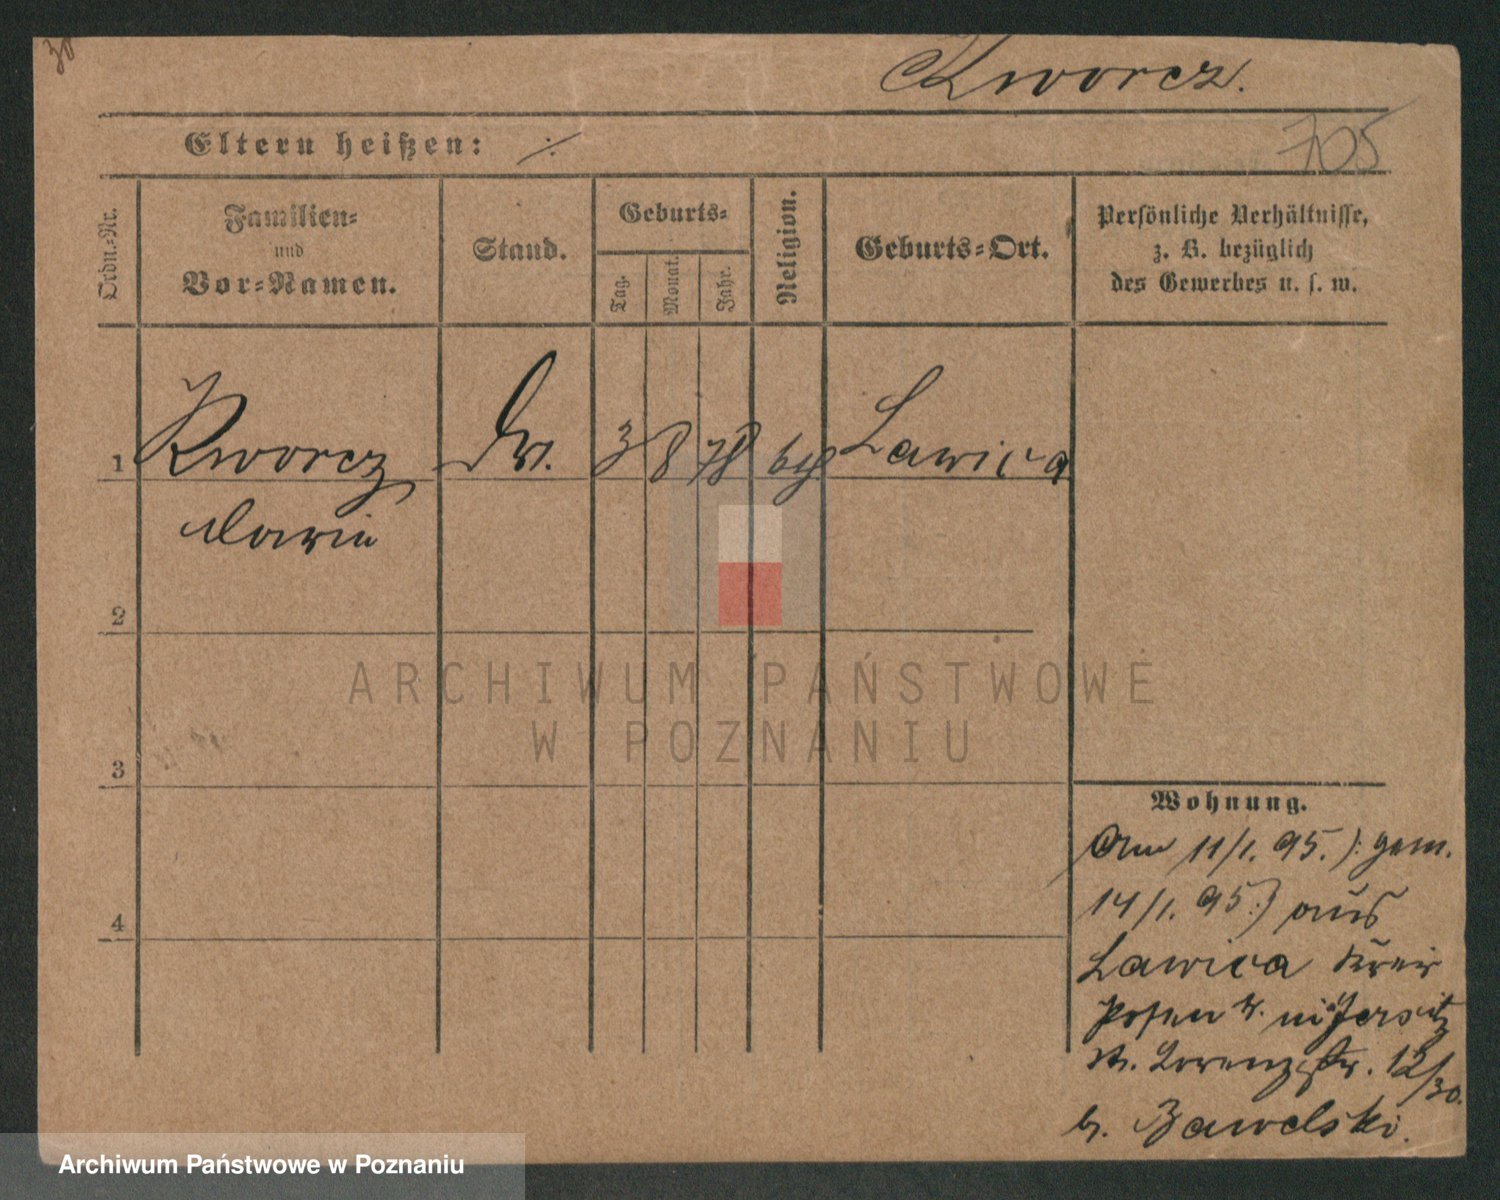 30
Kworcz.
Eltern heißen: ⁒
705
Ordn.-Nr.
Familien-
und
Vor-Namen.
Stand.
Geburts-
Tag.
Monat.
Jahr.
Religion.
Geburts-Ort.
Persönliche Verhältnisse,
z. B. bezüglich
des Gewerbes u. s. w.
1 Kworcz 3 8 78 Lawica
Marie
2
ARCHIWUM PAŃSTWOWE
W POZNANIU
3
Wohnung.
Am 11/1. 95. ): gem.
14/1. 95 :) aus
4
Lawica Kreis
Posen W. in Jersitz
St. Lorenzstr. 12/30.
b. Zawelski.
Archiwum Państwowe w Poznaniu